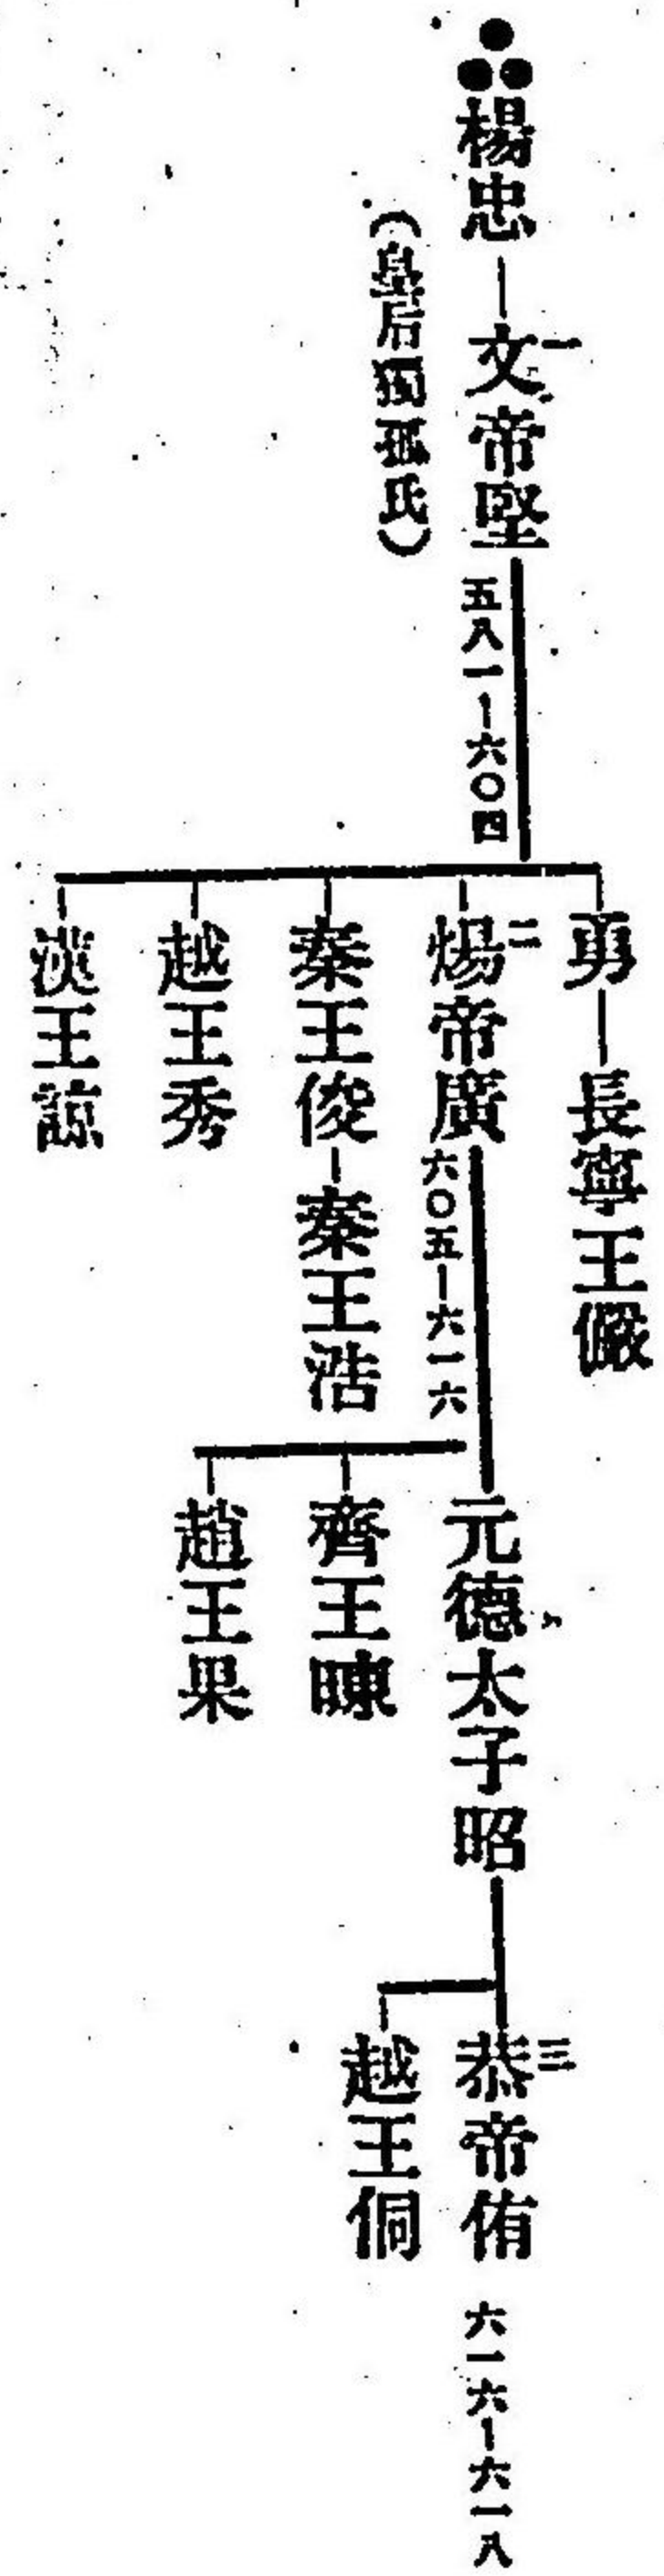 楊忠
一
文帝堅
五八一—六〇四
(皇后獨孤氏)
勇
長寧王儼
二
煬帝廣
六〇五—六一六
秦王俊
秦王浩
越王秀
漢王諒
元德太子昭
齊王暕
趙王果
三
恭帝侑
六一六—六一八
越王侗